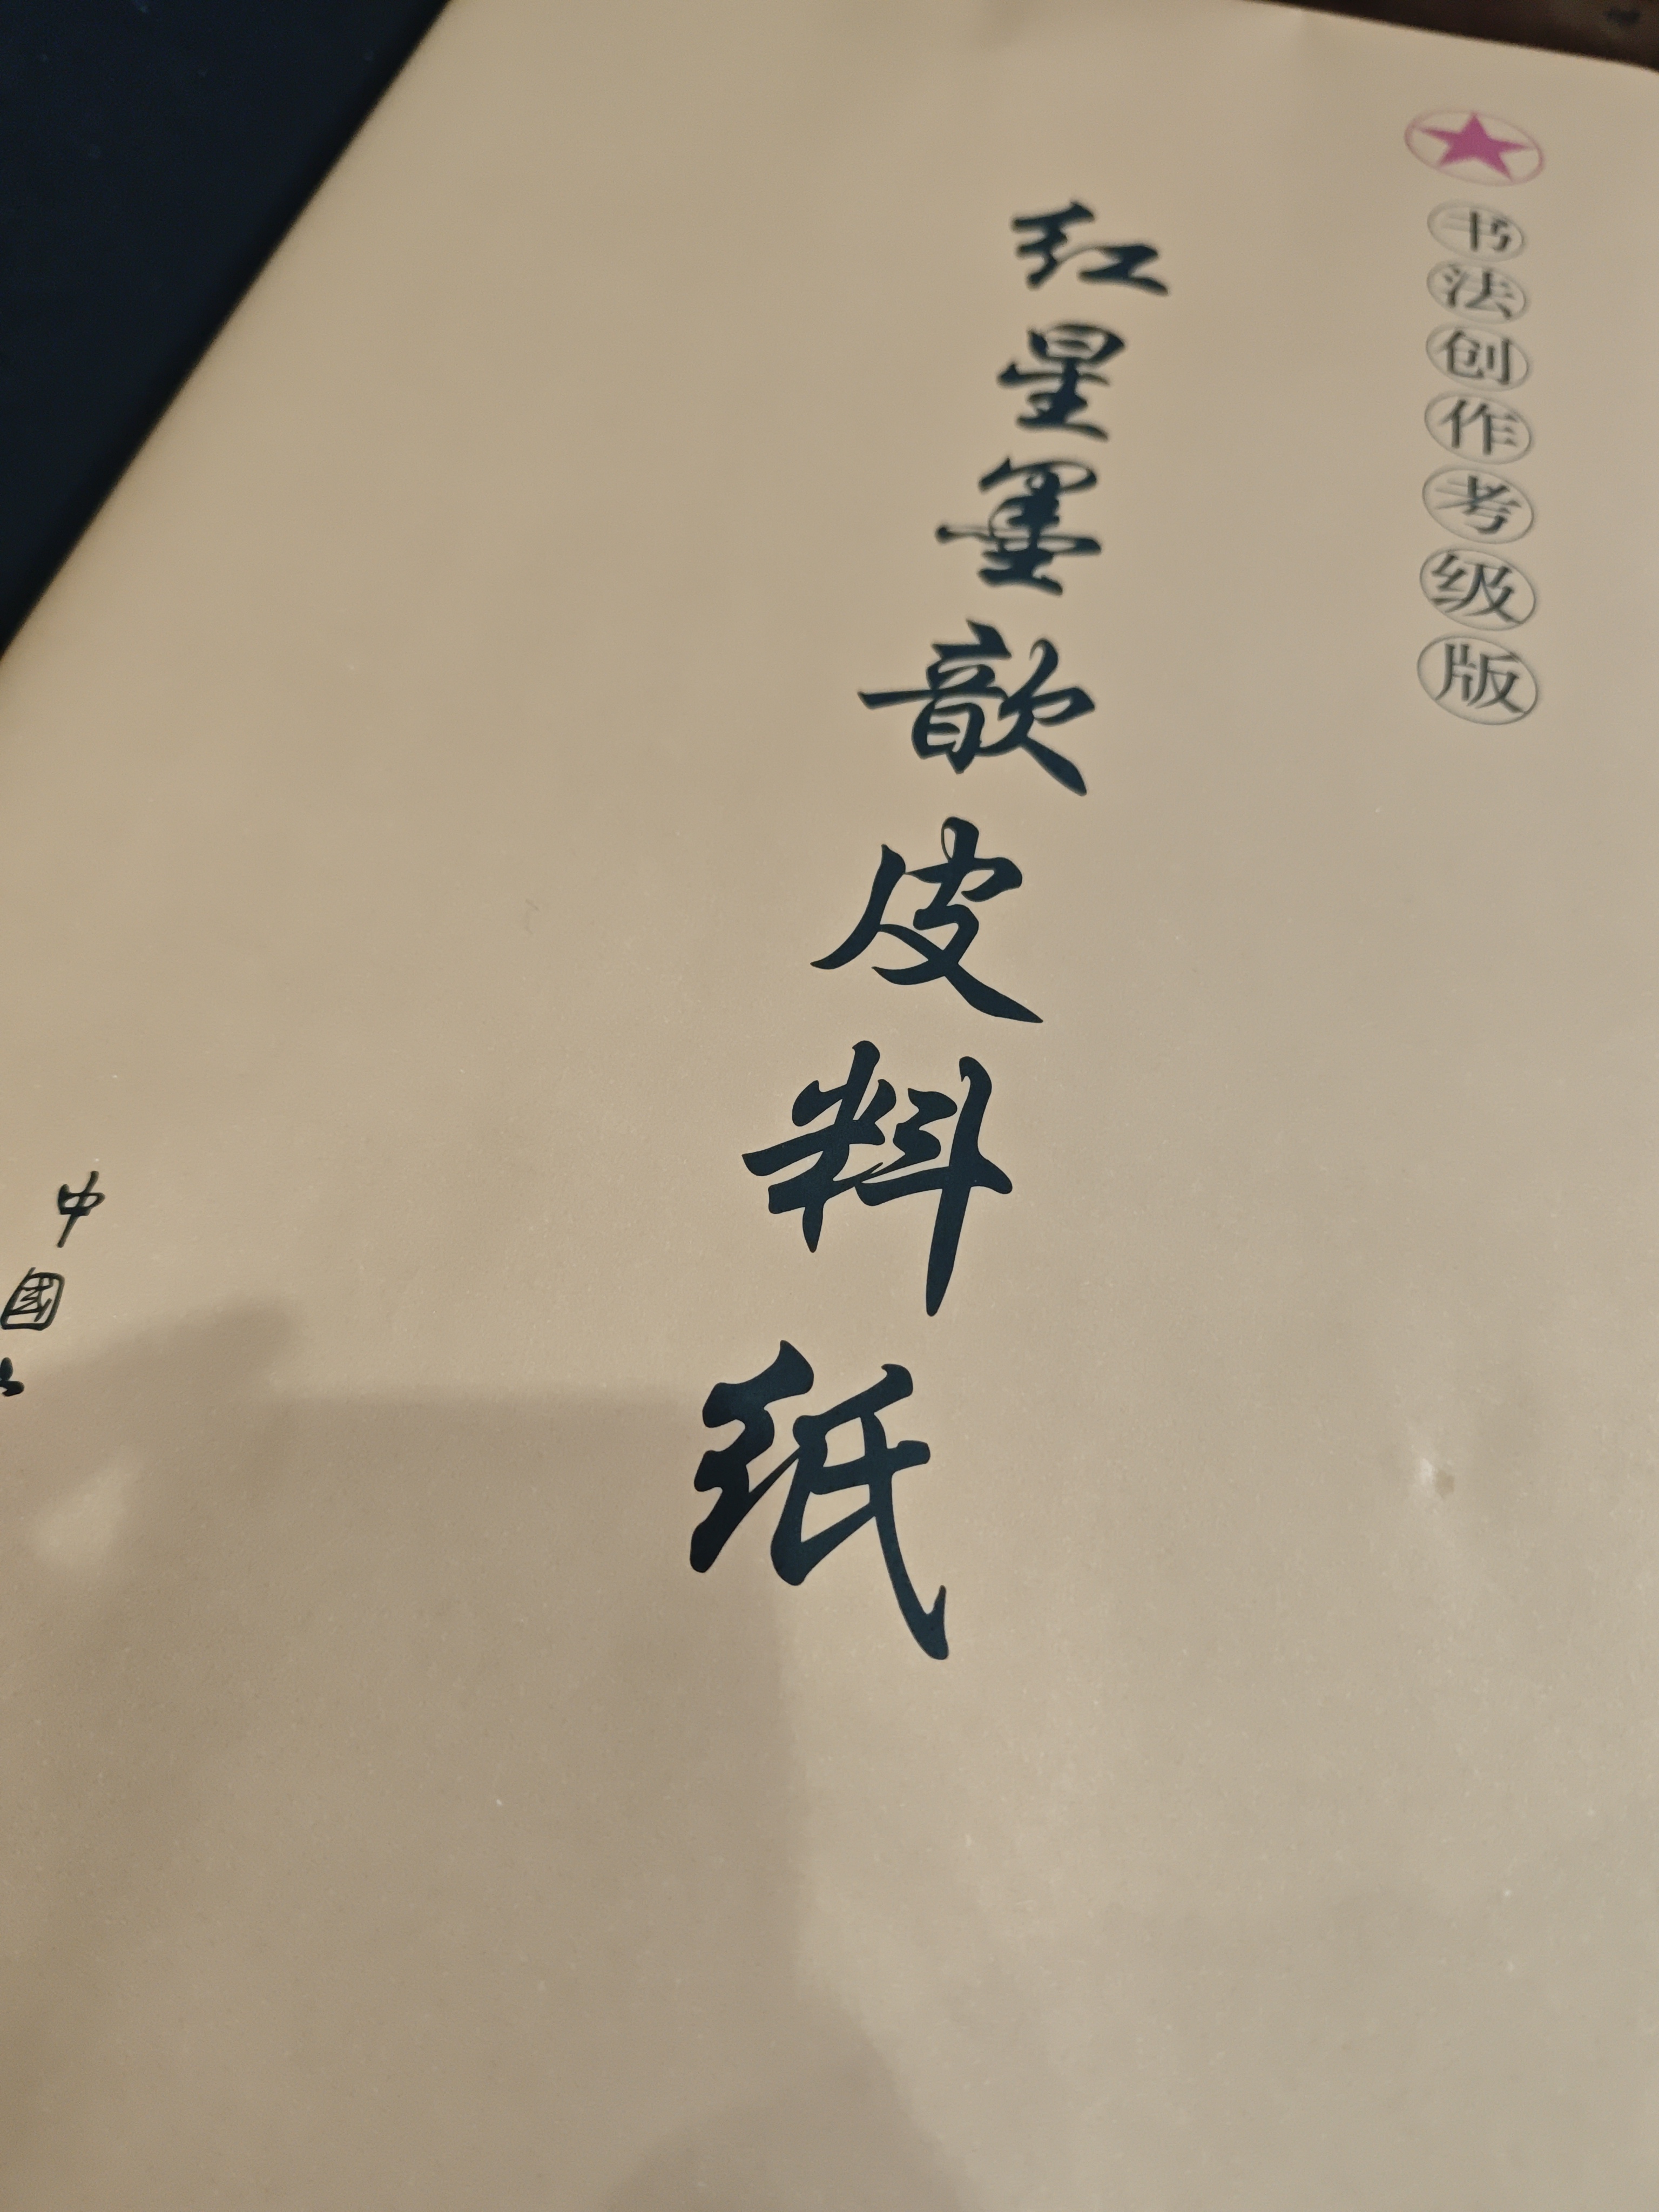 书法创作考级版
红星墨歆皮料纸
中國